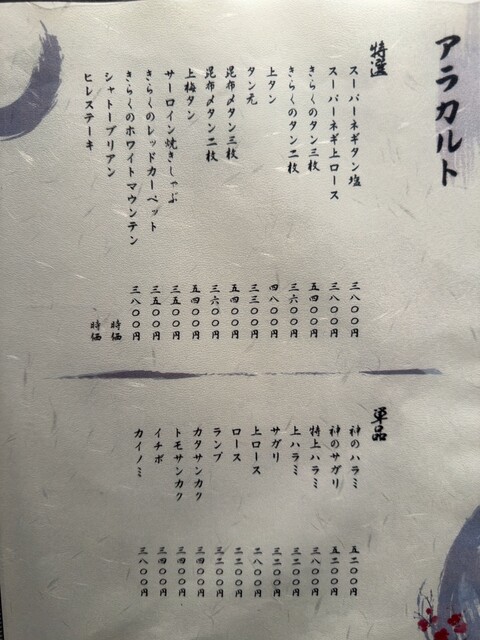 アラカルト
特選
スーパーネギタン塩 三八〇〇円
スーパーネギ上ロース 三八〇〇円
きらくのタン三枚 五四〇〇円
きらくのタン二枚 三六〇〇円
上タン 四八〇〇円
タン元 三三〇〇円
昆布〆タン三枚 五四〇〇円
昆布〆タン二枚 三六〇〇円
上梅タン 五四〇〇円
サーロイン焼きしゃぶ 三五〇〇円
きらくのレッドカーペット 三五〇〇円
きらくのホワイトマウンテン 三八〇〇円
シャトーブリアン 時価
ヒレステーキ 時価
単品
神のハラミ 五二〇〇円
神のサガリ 五二〇〇円
特上ハラミ 三八〇〇円
上ハラミ 三二〇〇円
サガリ 三二〇〇円
上ロース 二八〇〇円
ロース 二二〇〇円
ランプ 三二〇〇円
カタサンカク 三四〇〇円
トモサンカク 三四〇〇円
イチボ 三四〇〇円
カイノミ 三八〇〇円